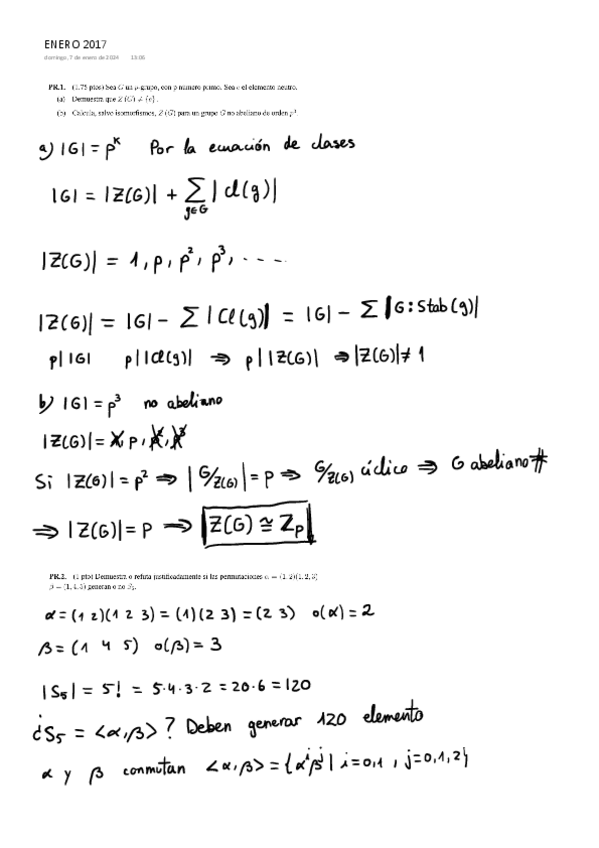 ENERO 2017
domingo, 7 de enero de 2024 13:05
PR.1. (1.75 ptos) Sea G un p-grupo, con p número primo. Sea e el elemento neutro.
(a) Demuestra que Z (G) ≠ {e}.
(b) Calcula, salvo isomorfismos, Z (G) para un grupo G no abeliano de orden p³.
a) |G| = p^k Por la ecuación de clases
|G| = |Z(G)| + Σ_{g∈G} |Cl(g)|
|Z(G)| = 1, p, p², p³, ....
|Z(G)| = |G| - Σ |Cl(g)| = |G| - Σ |G:Stab(g)|
p| |G| p| |Cl(g)| ⇒ p| |Z(G)| ⇒ |Z(G)| ≠ 1
b) |G| = p³ no abeliano
|Z(G)| = 1, p, p², p³
Si |Z(G)| = p² ⇒ |G/Z(G)| = p ⇒ G/Z(G) cíclico ⇒ G abeliano #
⇒ |Z(G)| = p ⇒ Z(G) ≅ Zp
PR.2. (1 pto) Demuestra o refuta justificadamente si las permutaciones α = (1, 2)(1, 2, 3)
β = (1, 4, 5) generan o no S₅.
α = (1 2)(1 2 3) = (1)(2 3) = (2 3) o(α) = 2
β = (1 4 5) o(β) = 3
|S5| = 5! = 5·4·3·2 = 20·6 = 120
¿S5 = <α,β>? Deben generar 120 elemento
α y β conmutan <α,β> = {α^i β^j | i=0,1 , j=0,1,2}